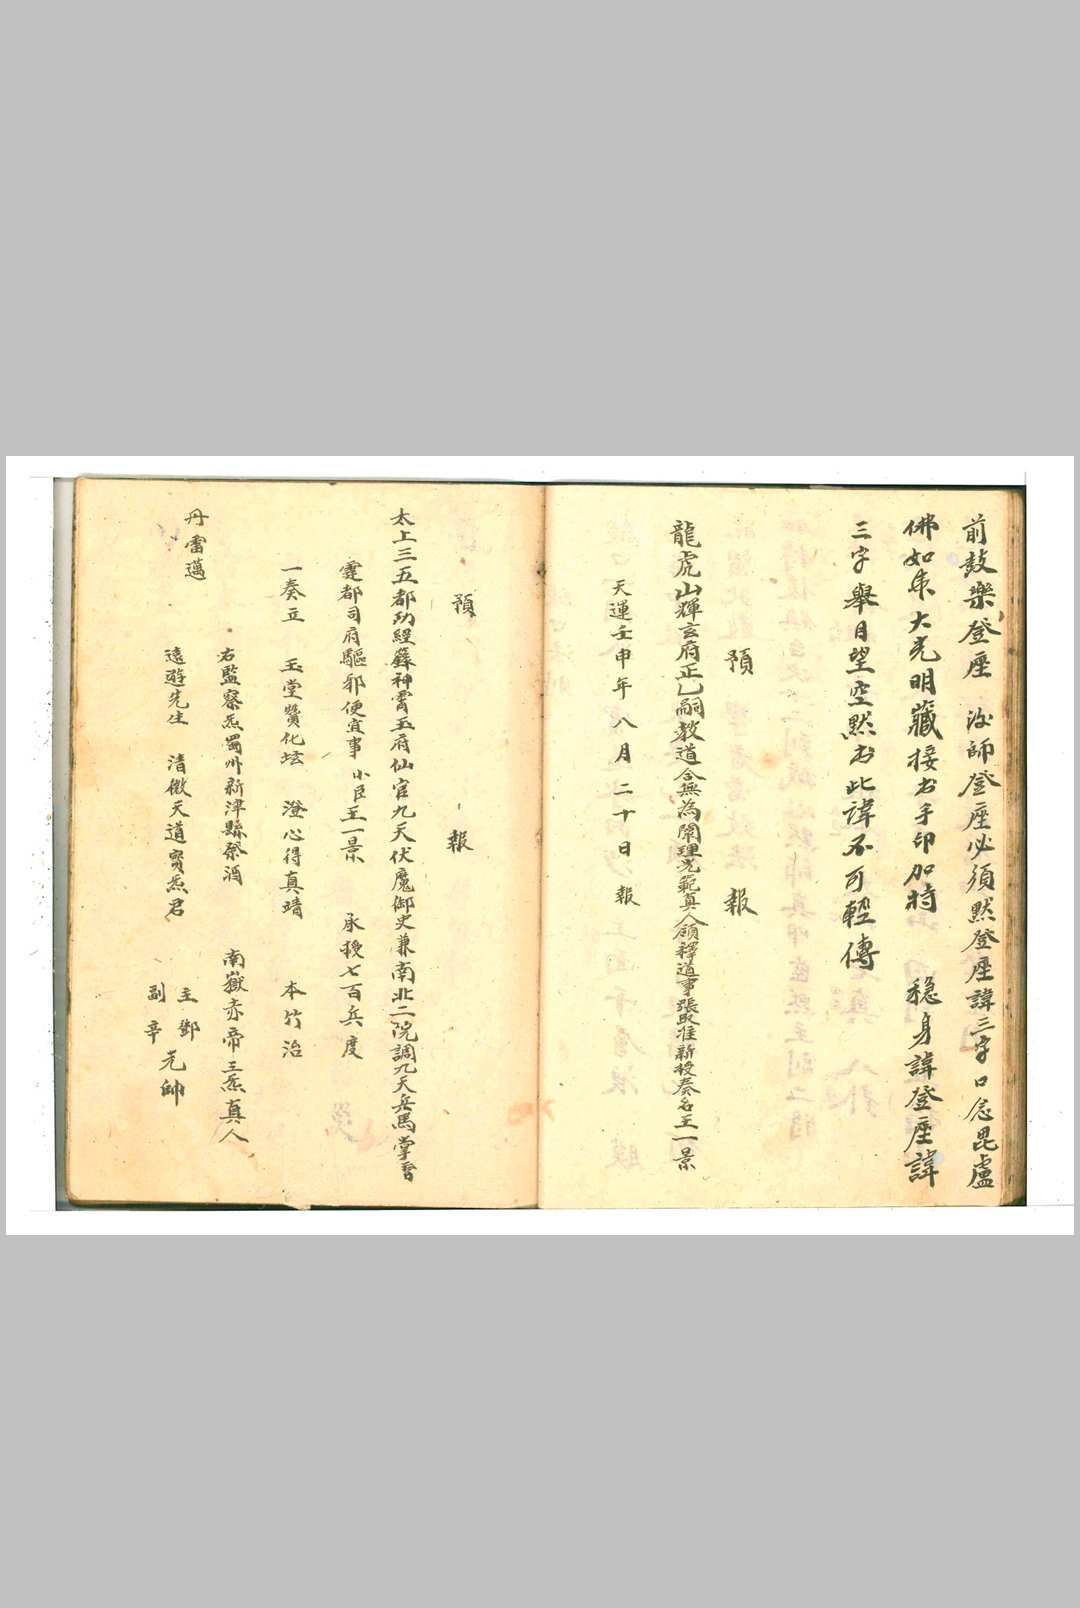 前鼓樂登座 法師登座必須默登座諱三字口念毘盧
佛如來大光明藏接書手印加持 穩身諱登座諱
三字舉目望空默書此諱不可輕傳
預 報
龍虎山輝玄府正乙嗣教道合無為闡理光範真人領釋道事張 新授奏名王一景
天運壬申年八月二十日報
預 報
太上三五都功經籙神霄玉府仙官九天伏魔御史兼南北二院調九天兵馬掌
霆都司府驅邪便宜事 小臣王一景 承授七百兵度
一奏立 玉堂贊化坛 澄心得真靖 本竹治
右監察炁蜀州新津縣祭酒 南嶽赤帝三炁真人
丹雷邁
遠遊先生 清微天道寶炁君
主鄧
副辛
元帥